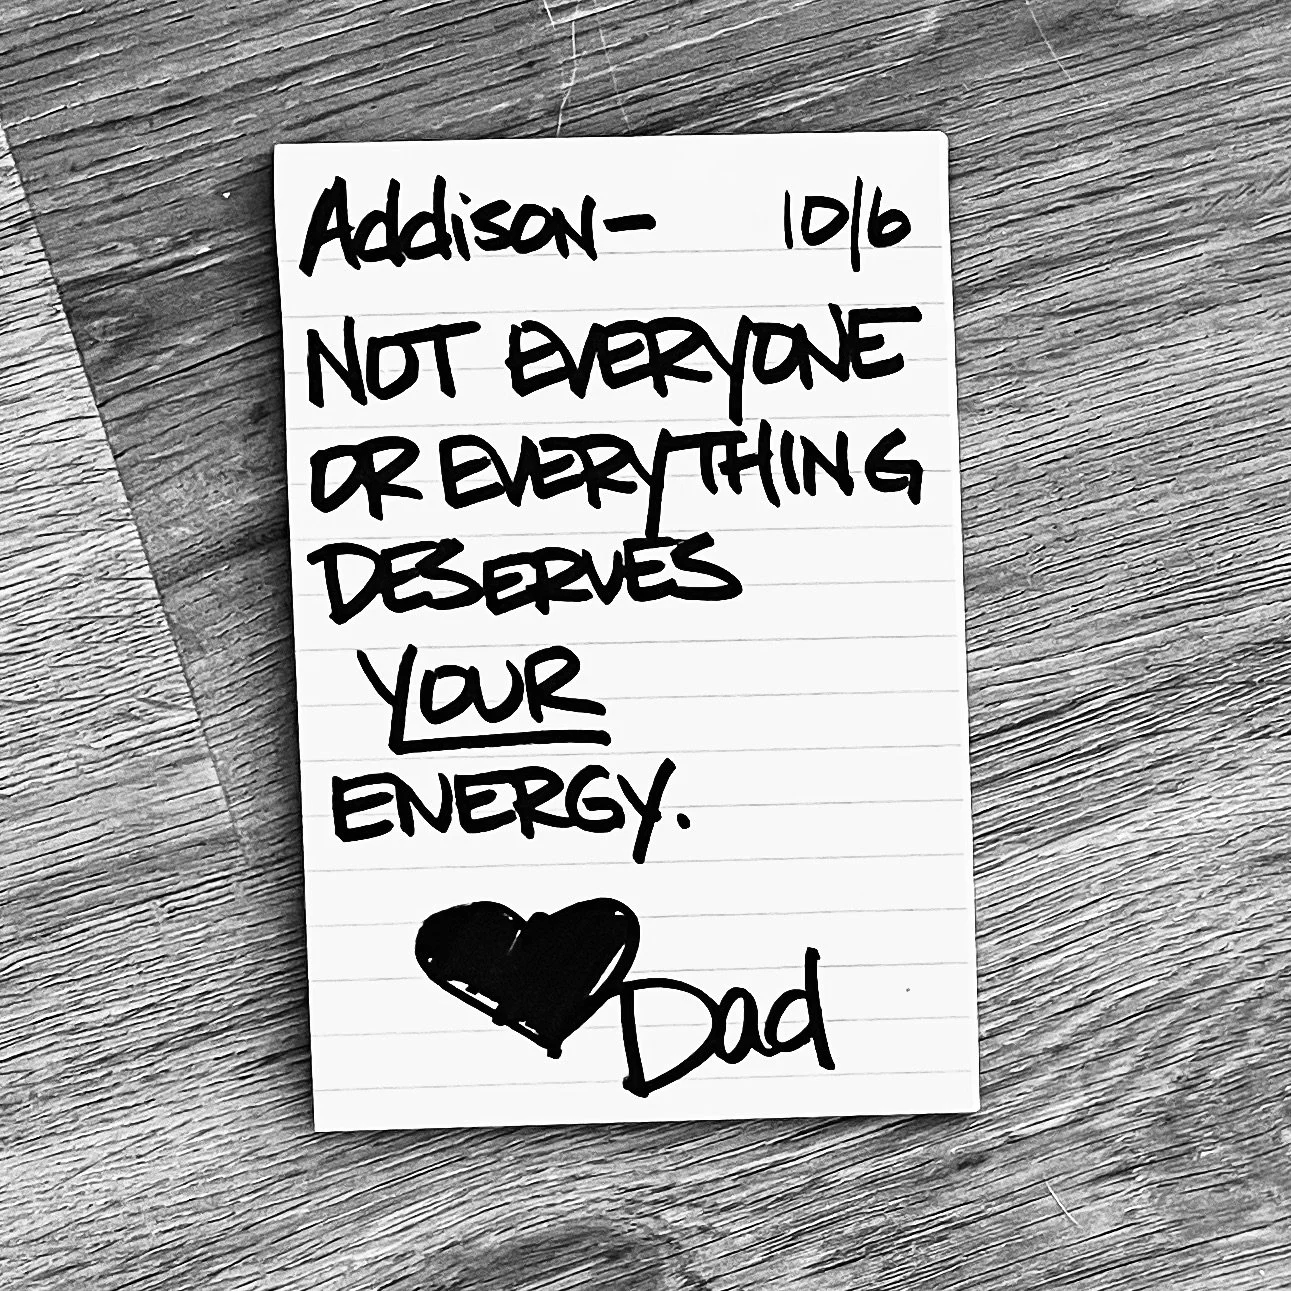 Addison- 10/6
NOT EVERYONE
OR EVERYTHING
DESERVES
YOUR
ENERGY.
Dad